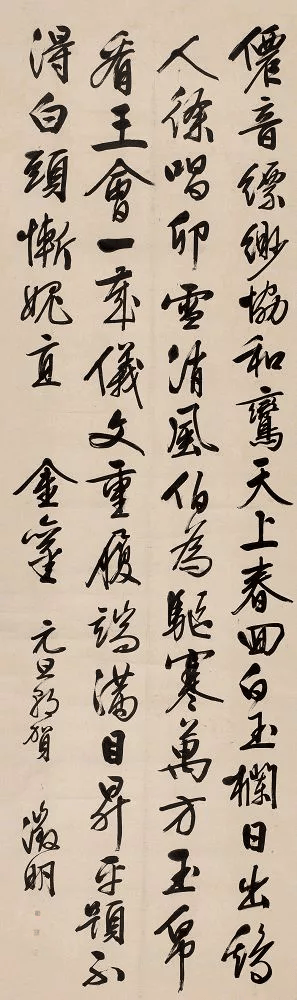 僊音縹緲協和鸞天上春回白玉欄日出鷄
人徐唱卯雪消風伯為驅寒萬方玉帛
看王會一歲儀文重履端滿目昇平題不
得白頭慚媿直金鑾 元旦朝賀 徵明